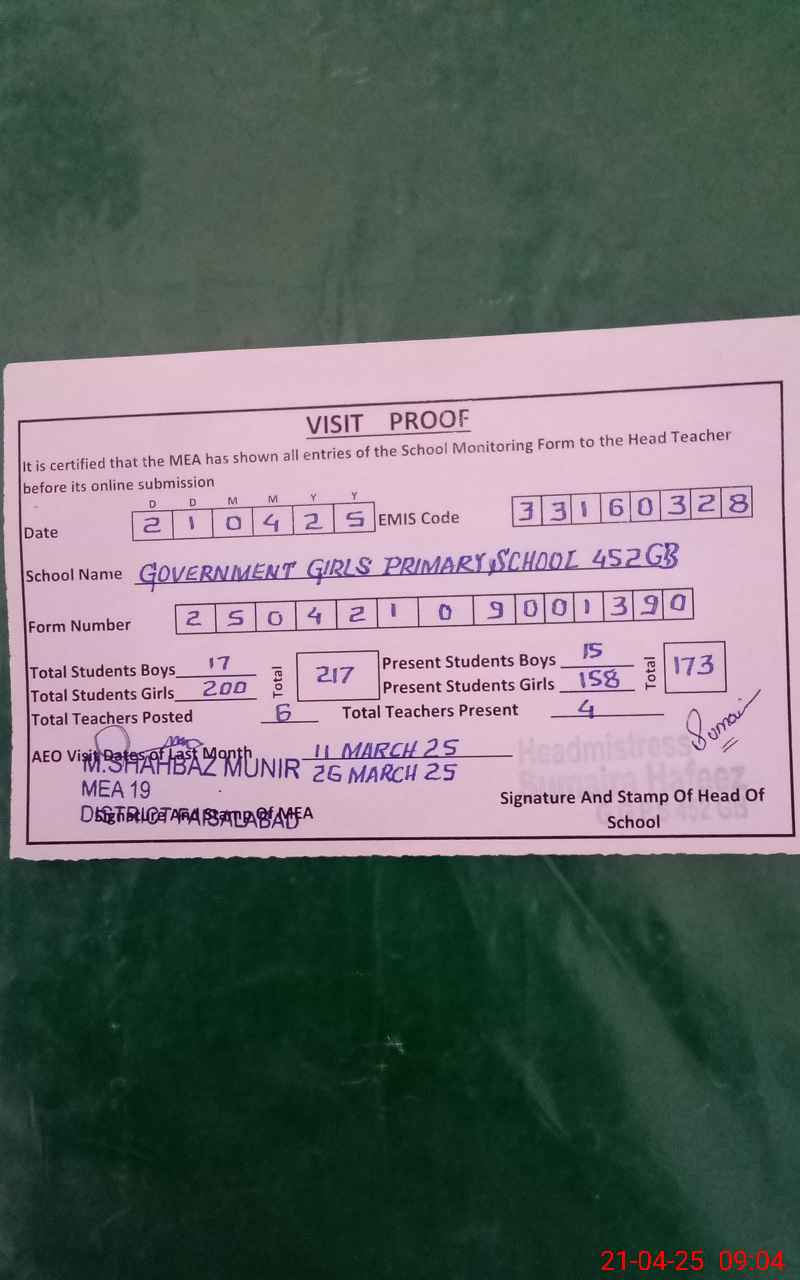 VISIT PROOF
It is certified that the MEA has shown all entries of the School Monitoring Form to the Head Teacher
before its online submission
D D M M Y Y
Date 2 1 0 4 2 5 EMIS Code 3 3 1 6 0 3 2 8
School Name GOVERNMENT GIRLS PRIMARY SCHOOL 452 GB
Form Number 2 5 0 4 2 1 0 9 0 0 1 3 9 0
Total Students Boys 17 Total 217 Present Students Boys 15 Total 173
Total Students Girls 200 Present Students Girls 158
Total Teachers Posted 6 Total Teachers Present 4
Sumai
AEO Visit Dates of Last Month 11 MARCH 25
26 MARCH 25
M.SHAHBAZ MUNIR
MEA 19
DISTRICT FAISALABAD
Signature And Stamp Of MEA
Headmistress
Sumaira Hafeez
452 GB
Signature And Stamp Of Head Of
School
21-04-25 09:04